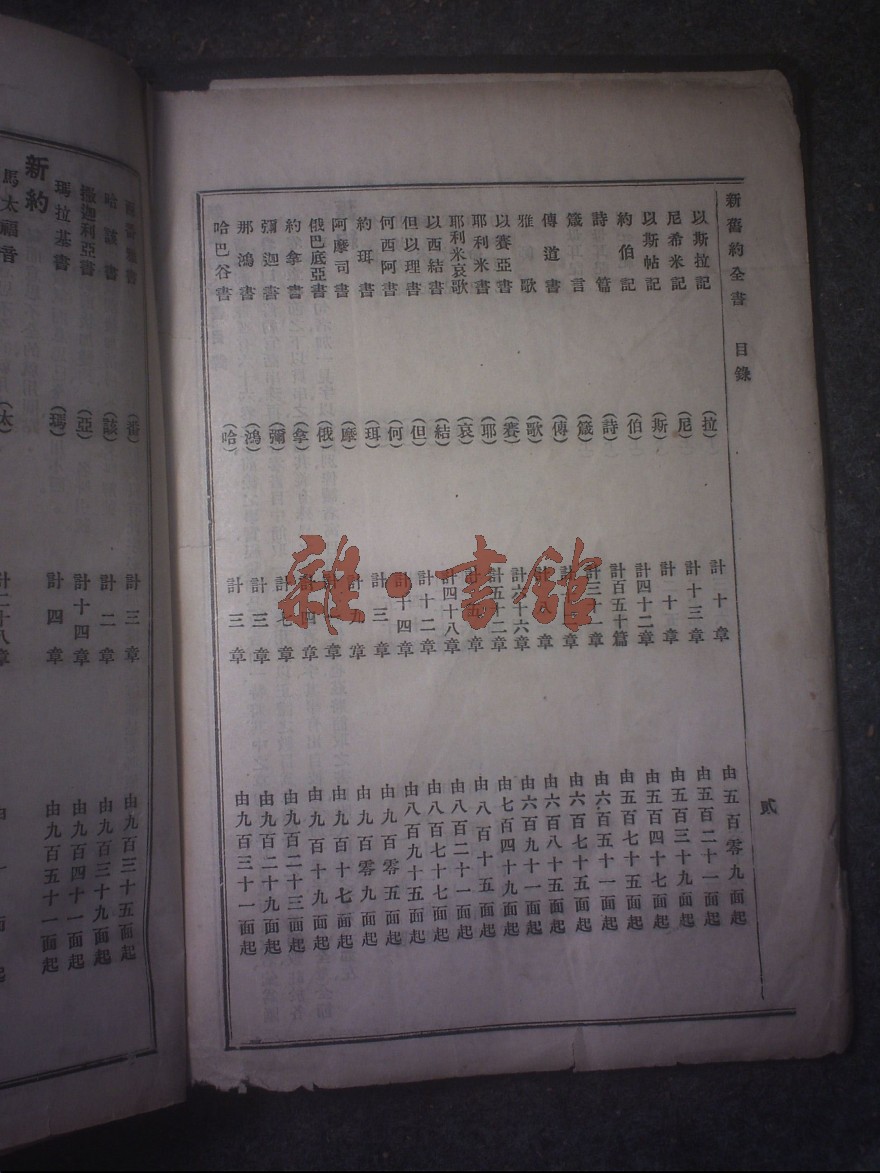 新舊約全書 目錄 貳
以斯拉記 (拉) 計十章 由五百零九面起
尼希米記 (尼) 計十三章 由五百二十一面起
以斯帖記 (斯) 計十章 由五百三十九面起
約伯記 (伯) 計四十二章 由五百四十七面起
詩篇 (詩) 計百五十篇 由五百七十五面起
箴言 (箴) 計三十一章 由六百五十一面起
傳道書 (傳) 計十二章 由六百七十五面起
雅歌 (歌) 計八章 由六百八十五面起
以賽亞書 (賽) 計六十六章 由六百九十一面起
耶利米書 (耶) 計五十二章 由七百四十九面起
耶利米哀歌 (哀) 計五章 由八百十五面起
以西結書 (結) 計四十八章 由八百二十一面起
但以理書 (但) 計十二章 由八百七十七面起
何西阿書 (何) 計十四章 由八百九十五面起
約珥書 (珥) 計三章 由九百零五面起
阿摩司書 (摩) 計九章 由九百零九面起
俄巴底亞書 (俄) 計一章 由九百十七面起
約拿書 (拿) 計四章 由九百十九面起
彌迦書 (彌) 計七章 由九百二十三面起
那鴻書 (鴻) 計三章 由九百二十九面起
哈巴谷書 (哈) 計三章 由九百三十一面起
雜·書館
番雅書 (番) 計三章 由九百三十五面起
哈該書 (該) 計二章 由九百三十九面起
撒迦利亞書 (亞) 計十四章 由九百四十一面起
瑪拉基書 (瑪) 計四章 由九百五十一面起
新約
馬太福音 (太) 計二十八章